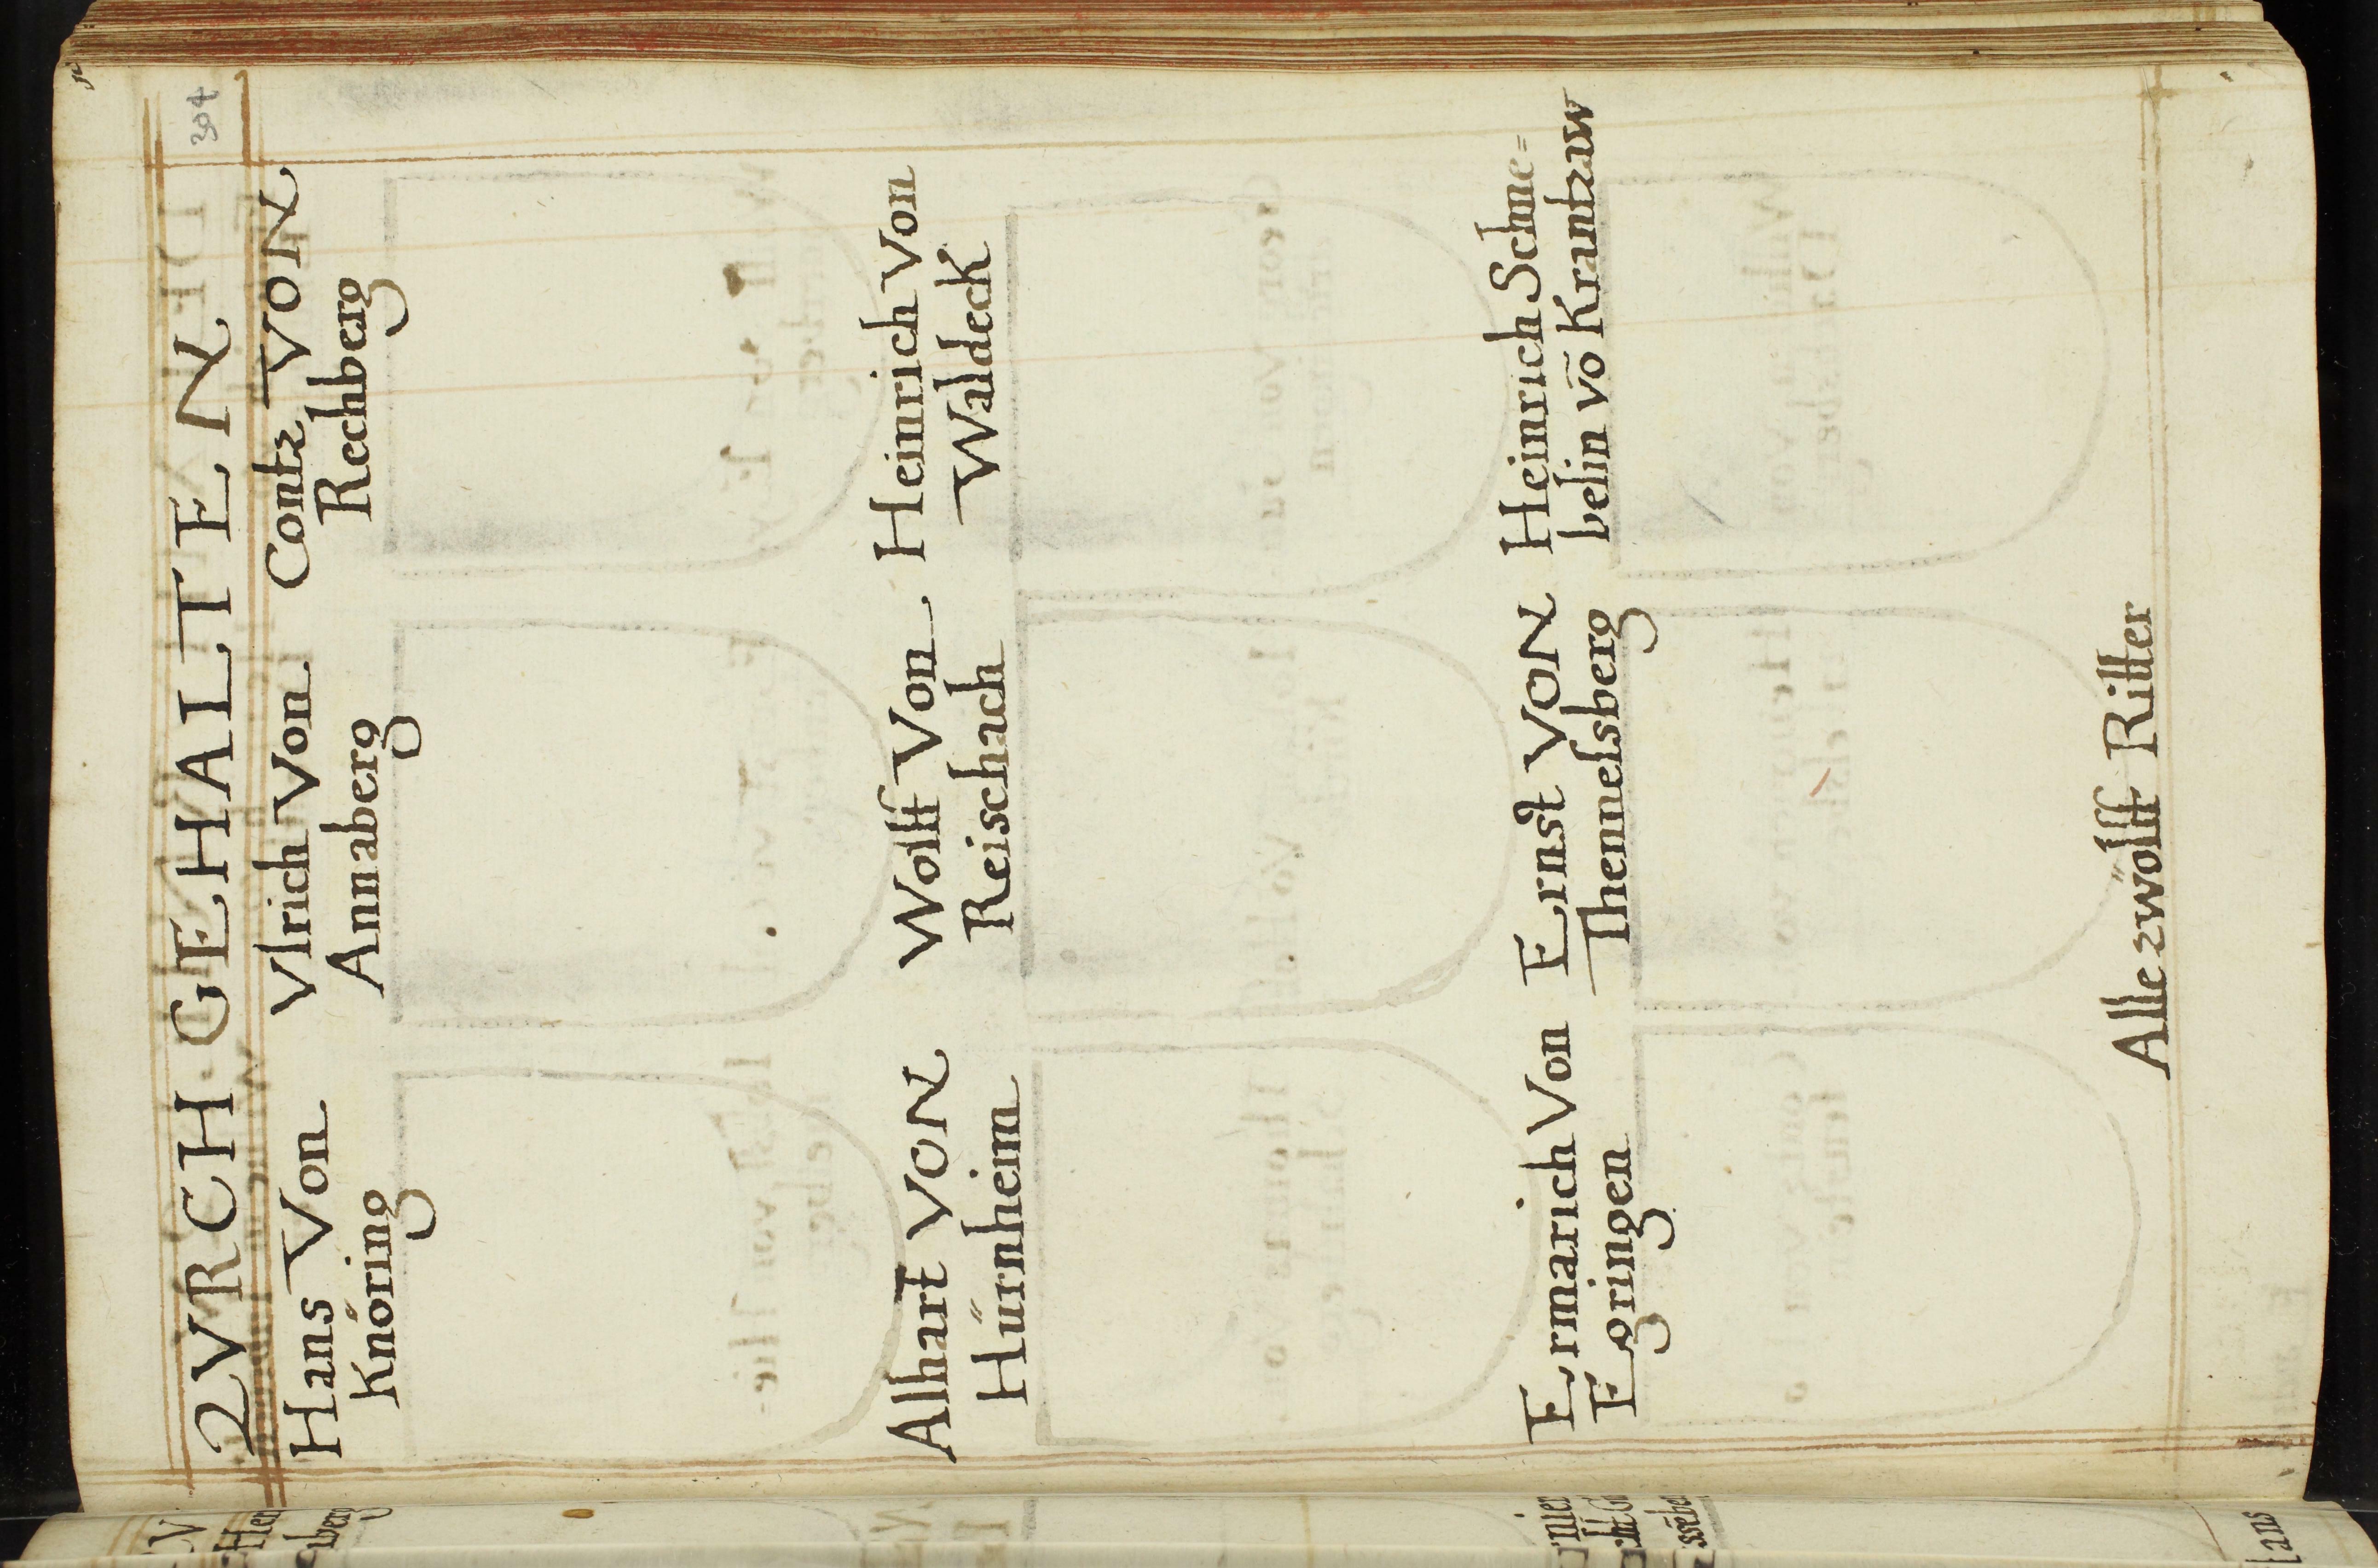 304
ZVRCH GEHALTEN
Hans Von
Knöring
Vlrich Von
Annaberg
Contz VON
Rechberg
Albart VON
Hürnheim
Wolff Von
Reischach
Heinrich Von
Waldeck
Ermarich Von
Egringen
Ernst VON
Themelsberg
Heinrich Schne=
belin võ Krantzaw
Alle zwölff Ritter